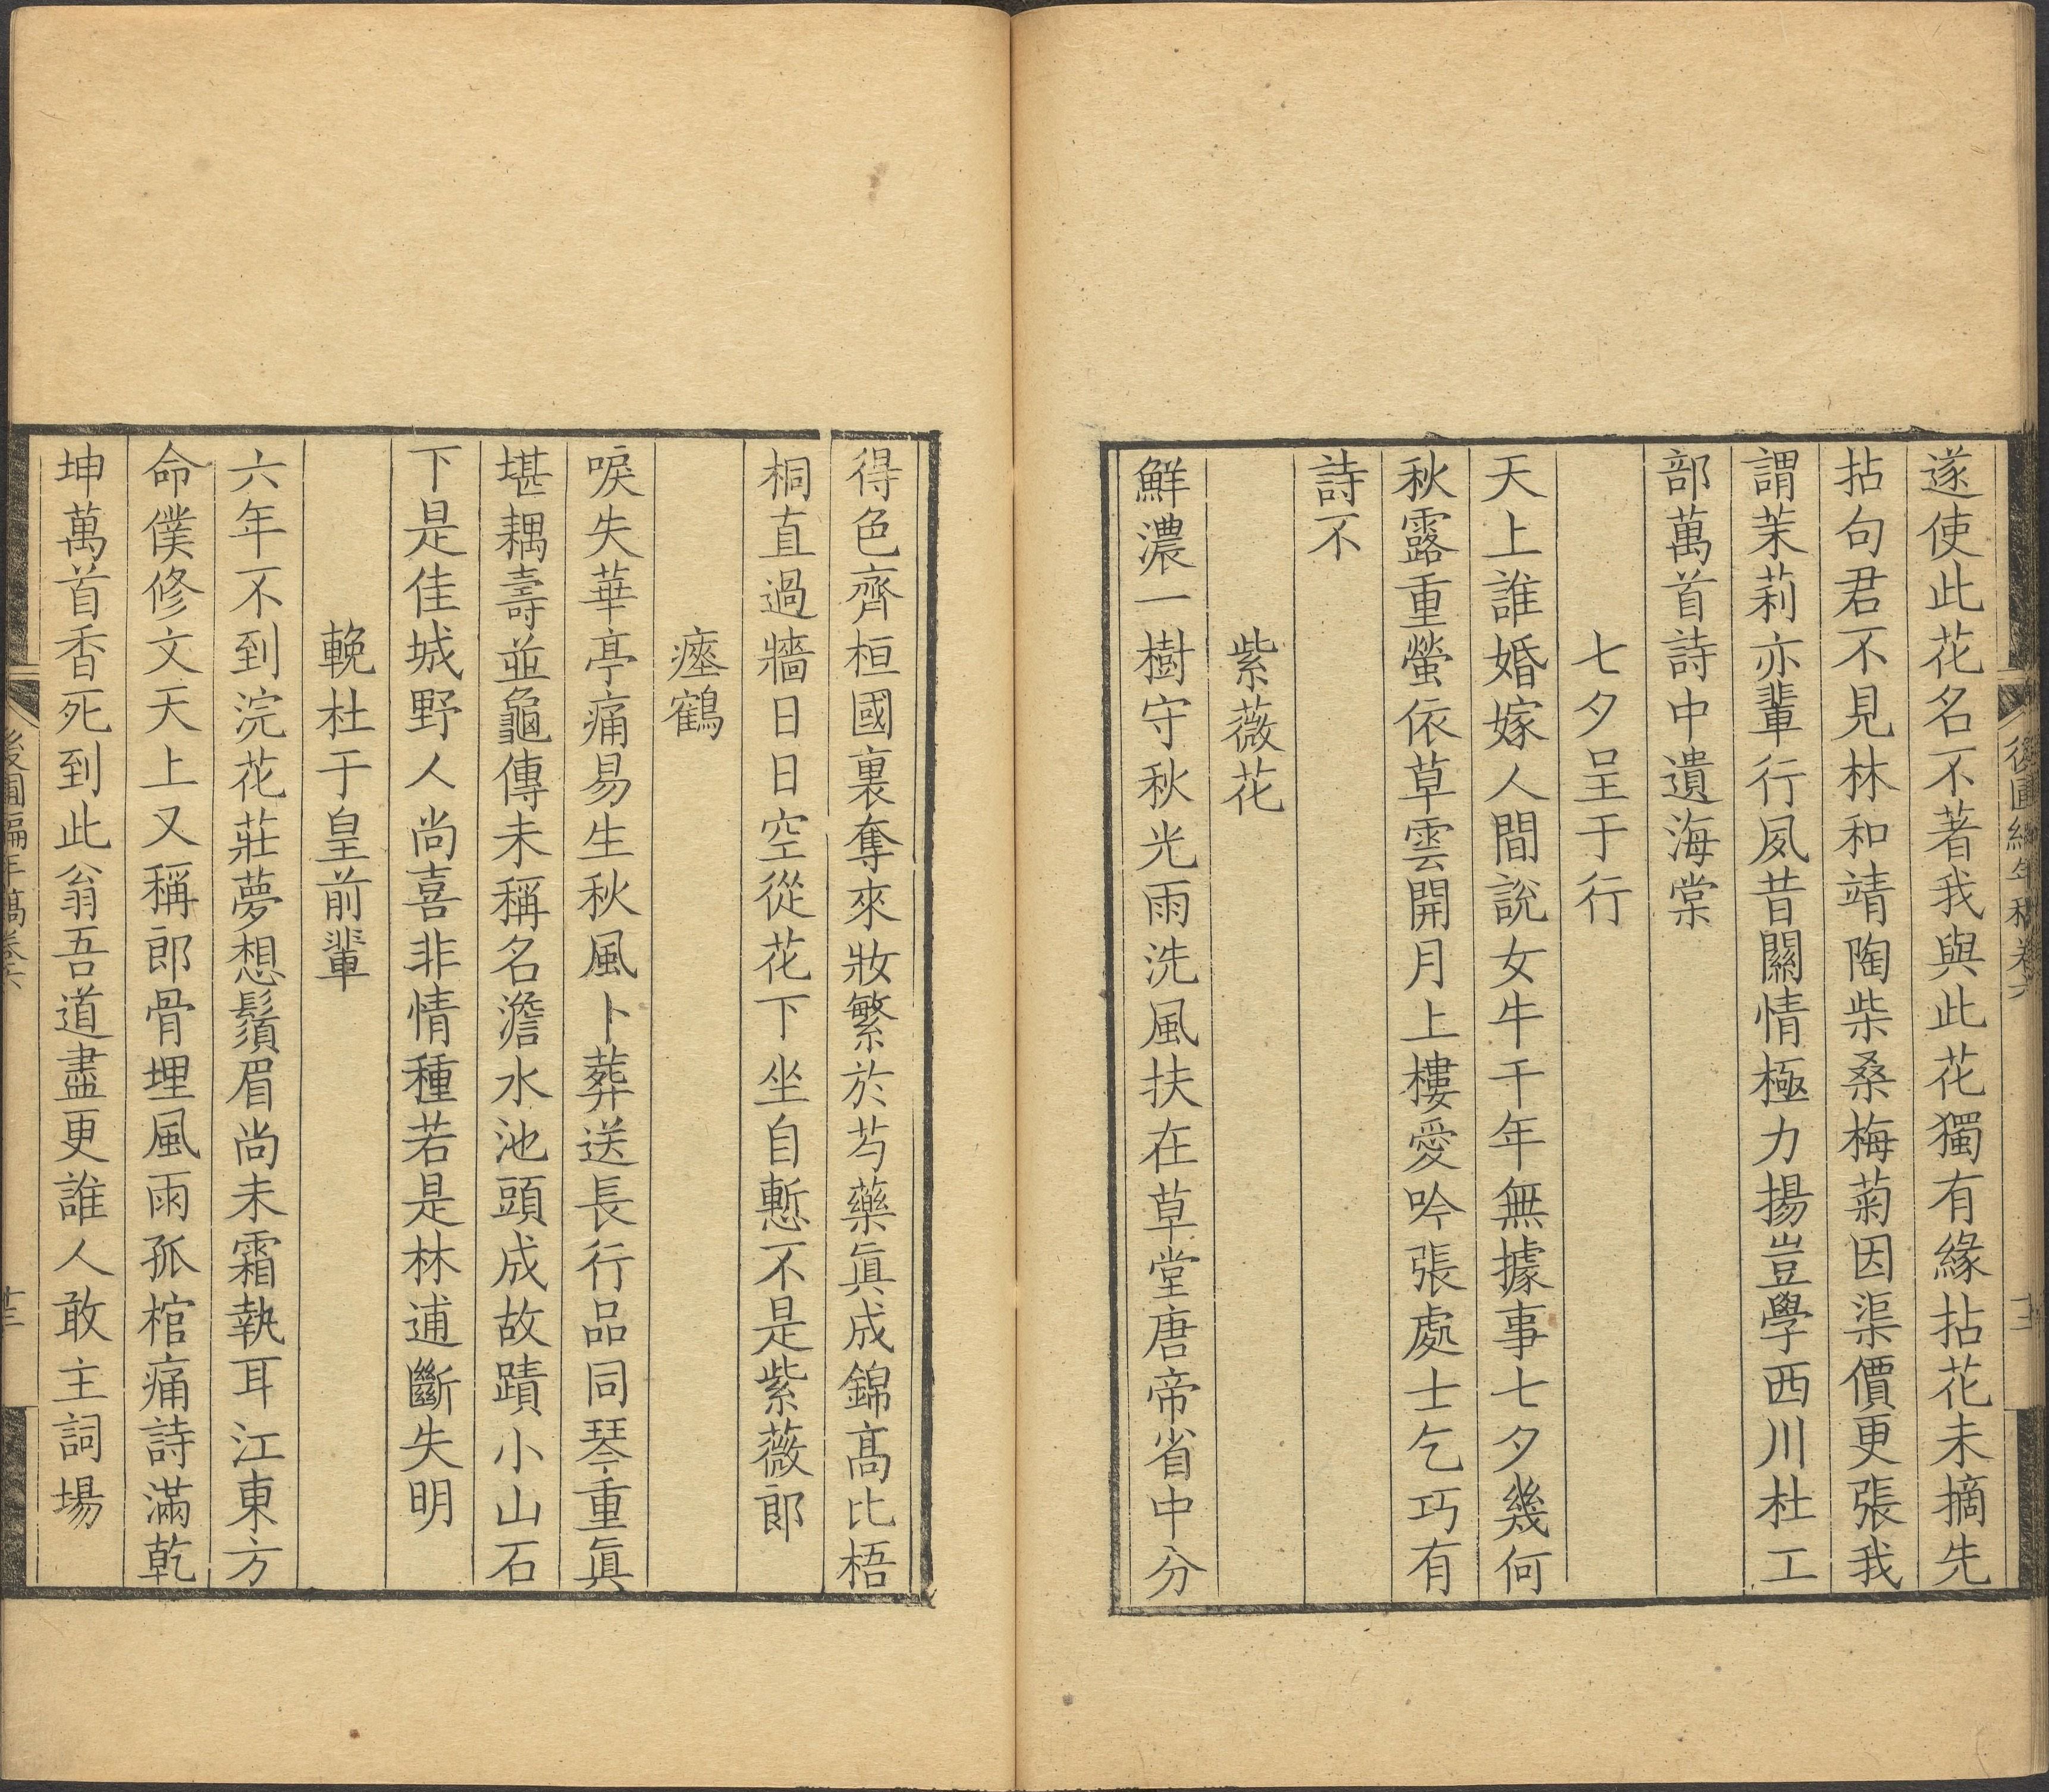 遂使此花名不著我與此花獨有緣拈花未摘先
拈句君不見林和靖陶柴桑梅菊因渠價更張我
謂茉莉亦輩行夙昔關情極力揚豈學西川杜工
部萬首詩中遺海棠
七夕呈于行
天上誰婚嫁人間說女牛千年無據事七夕幾何
秋露重螢依草雲開月上樓愛吟張處士乞巧有
詩不
紫薇花
鮮濃一樹守秋光雨洗風扶在草堂唐帝省中分
得色齊桓國裏奪來妝繁於芍藥眞成錦高比梧
桐直過牆日日空從花下坐自慙不是紫薇郎
瘞鶴
唳失華亭痛易生秋風卜葬送長行品同琴重眞
堪耦壽並龜傳未稱名澹水池頭成故蹟小山石
下是佳城野人尚喜非情種若是林逋斷失明
輓杜于皇前輩
六年不到浣花莊夢想鬚眉尚未霜執耳江東方
命僕修文天上又稱郎骨埋風雨孤棺痛詩滿乾
坤萬首香死到此翁吾道盡更誰人敢主詞場
後圃編年稿卷六